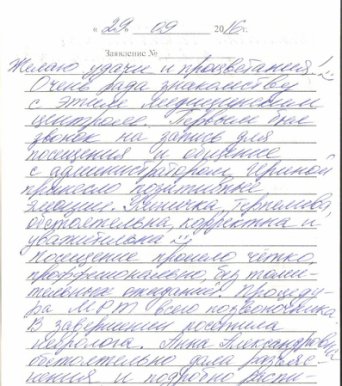 « 29 » 09 2016г.
Заявление №
Желаю удачи и процветания!
Очень рада знакомству
с этим медицинским
центром. Первый же
звонок на запись для
посещения и общение
с администратором Ириной
принесло позитивные
эмоции. Вежлива, терпелива,
обстоятельна, корректна и
уважительна
Посещение прошло чётко,
профессионально, без томи-
тельных ожиданий. Процеду-
ра МРТ всего позвоночника.
В завершении посетила
невролога. Анна Александровна
обстоятельно дала разъяс-
нения и подробно распи-